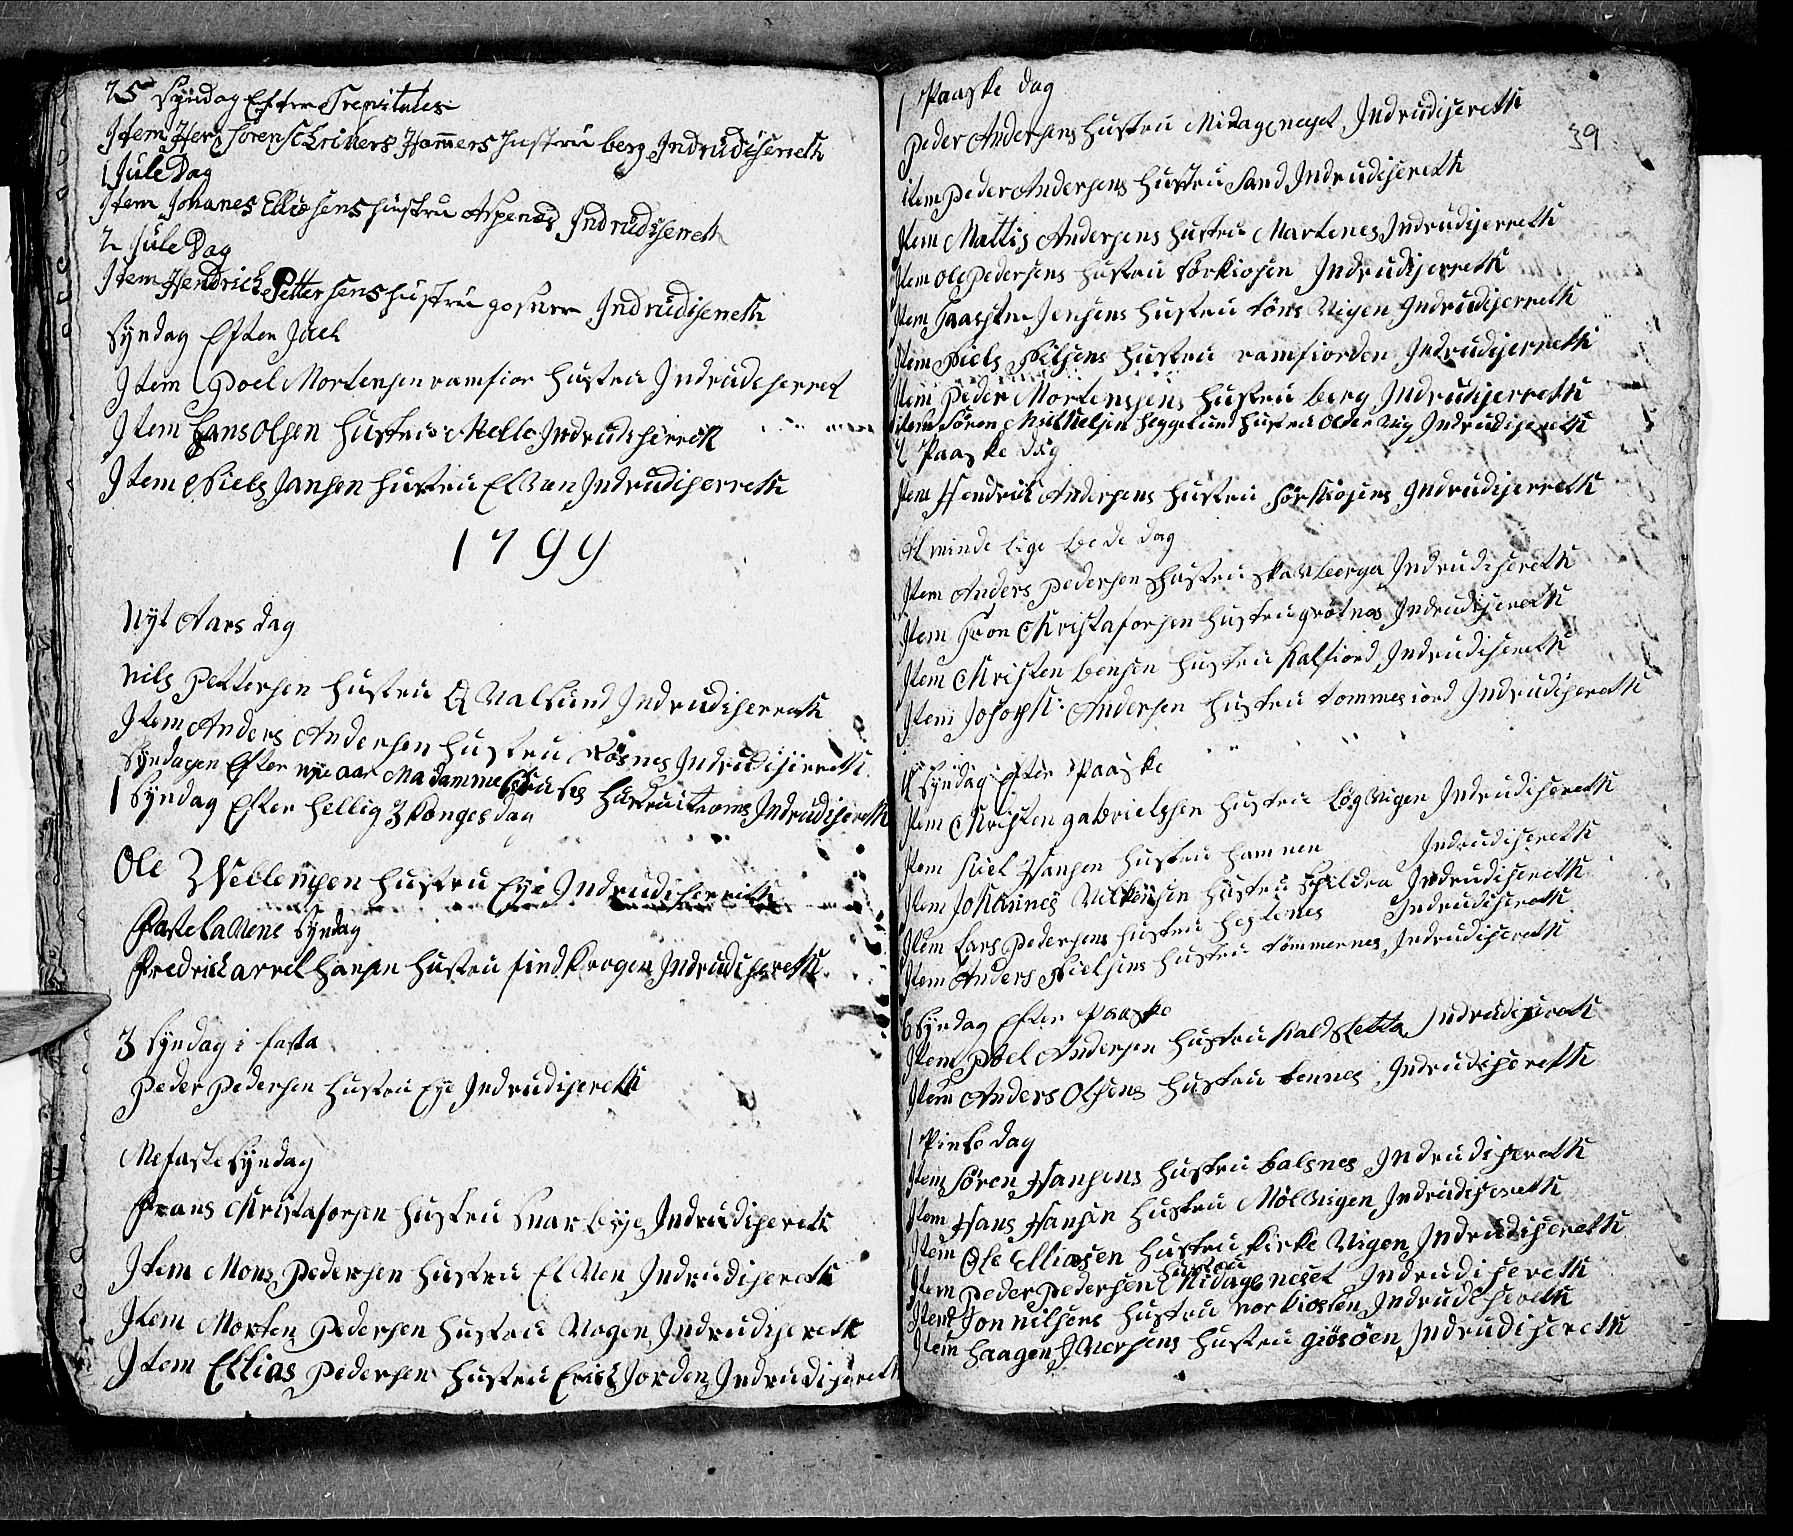 25 Syndag Efter Trenitates
Item Her Sorenschrivers Hamers hustru berg Indrudiserreth
1 Jule Dag
Item Johanes Elliesens hustru Aspenes Indrudiserreth
2 Jule Dag
Item Hendrich Pettersens hustru Indrudisereth
Syndag Efter Juel
Item Poel Mortensen ramfior hustru Indrudiserret
Item Hans Olsen hustru Mello Indrudiserreth
Item Niels Jansen hustru Elven Indrudiserreth
1799
Nyt Aars dag
Nils Pettersen hustru Qvalsund Indrudiserreth
Item Anders Andersen hustru Røsnes Indrudiserreth
Syndagen Efter nye aar Madamme hustru troms Indrudisereth
1 Syndag Efter hellig 3 Konges dag
Ole Vellemsen hustru Eye Indrudiserreth
Fastelavens Syndag
Fredrich arrel hansen hustru find krogen Indrudisereth
3 Syndag i fasta
Peder Pedersen hustru Eye Indrudisereth
Mefaste Syndag
Frans Christaforsen hustru Snarbye Indrudisereth
Item Mons Pedersen hustru Elven Indrudisereth
Item Morten Pedersen hustru Vogen Indrudisereth
Item Ellias Pedersen hustru Erich Jorden Indrudisereth
39
1 Paaske dag
Peder Andersens hustru Midagsneset Indrudisereth
item Peder Andersens hustru Sand Indrudisereth
Item Mattis Andersens hustru Martenes Indrudiserreth
Item Ole Pedersens hustru Sørkiosen Indrudiserreth
Item Jensens hustru Tøns Vigen Indrudiserreth
Item Niels Nilsens hustru ramfiorden Indrudiserreth
Item Peder Mortensens hustru berg Indrudiserreth
item Søren Mikkelsen Heggelund hustru Older Vig Indrudisereth
2 Paaske dag
Item Hendrich Andersens hustru Sørkiosens Indrudiserreth
Almindelige bede dag
Item Anders Pedersen hustru Skavberga Indrudisereth
Item Tron Christaforsen hustru grøtnes Indrudisereth
Item Christen bensen hustru Kalfiord Indrudisereth
Item Joseph Andersen hustru tommesiord Indrudisereth
4 Syndag Efter Paaske
Item Christen gabrielssen hustru Løgvigen Indrudisereth
Item Niel Hansen hustru hamnen Indrudisereth
Item Johannes hustru Skildra Indrudisereth
Item Lars Pedersens hustru hestenes Indrudisereth
Item Anders Nielsens hustru tømmernes Indrudisereth
6 Syndag Efter Paaske
Item Poel Andersen hustru Kaldsletta Indrudisereth
Item Anders Olsens hustru bennes Indrudisereth
1 Pintse dag
Item Søren Hansens hustru balsnes Indrudisereth
Item Hans Hansen hustru Mølvigen Indrudisereth
Item Ole Elliasen hustru Kirke Vigen Indrudisereth
Item Peder Pedersen hustru Midagsneset Indrudisereth
Item Jon Nilsens hustru norkiosen Indrudisereth
Item Haagen Iversens hustru giøsøen Indrudisereth